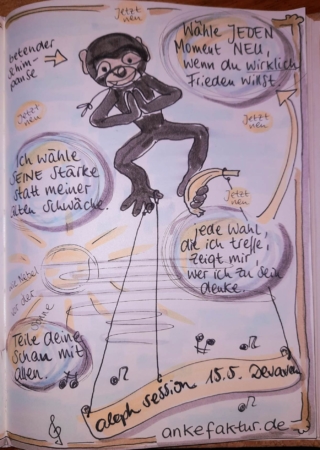 Jetzt
neu
betender
Schim-
panse
Wähle JEDEN
Moment NEU,
wenn du wirklich
Frieden willst.
Jetzt
neu
Jetzt
neu
Ich wähle
SEINE Stärke
statt meiner
alten Schwäche.
Jetzt
neu
Jede Wahl,
die ich treffe,
zeigt mir,
wer ich zu sein
denke.
wie Nebel
vor der
Sonne
Teile deine
Scham mit
allen.
aleph session 15.5. Devavan
ankefaktur.de